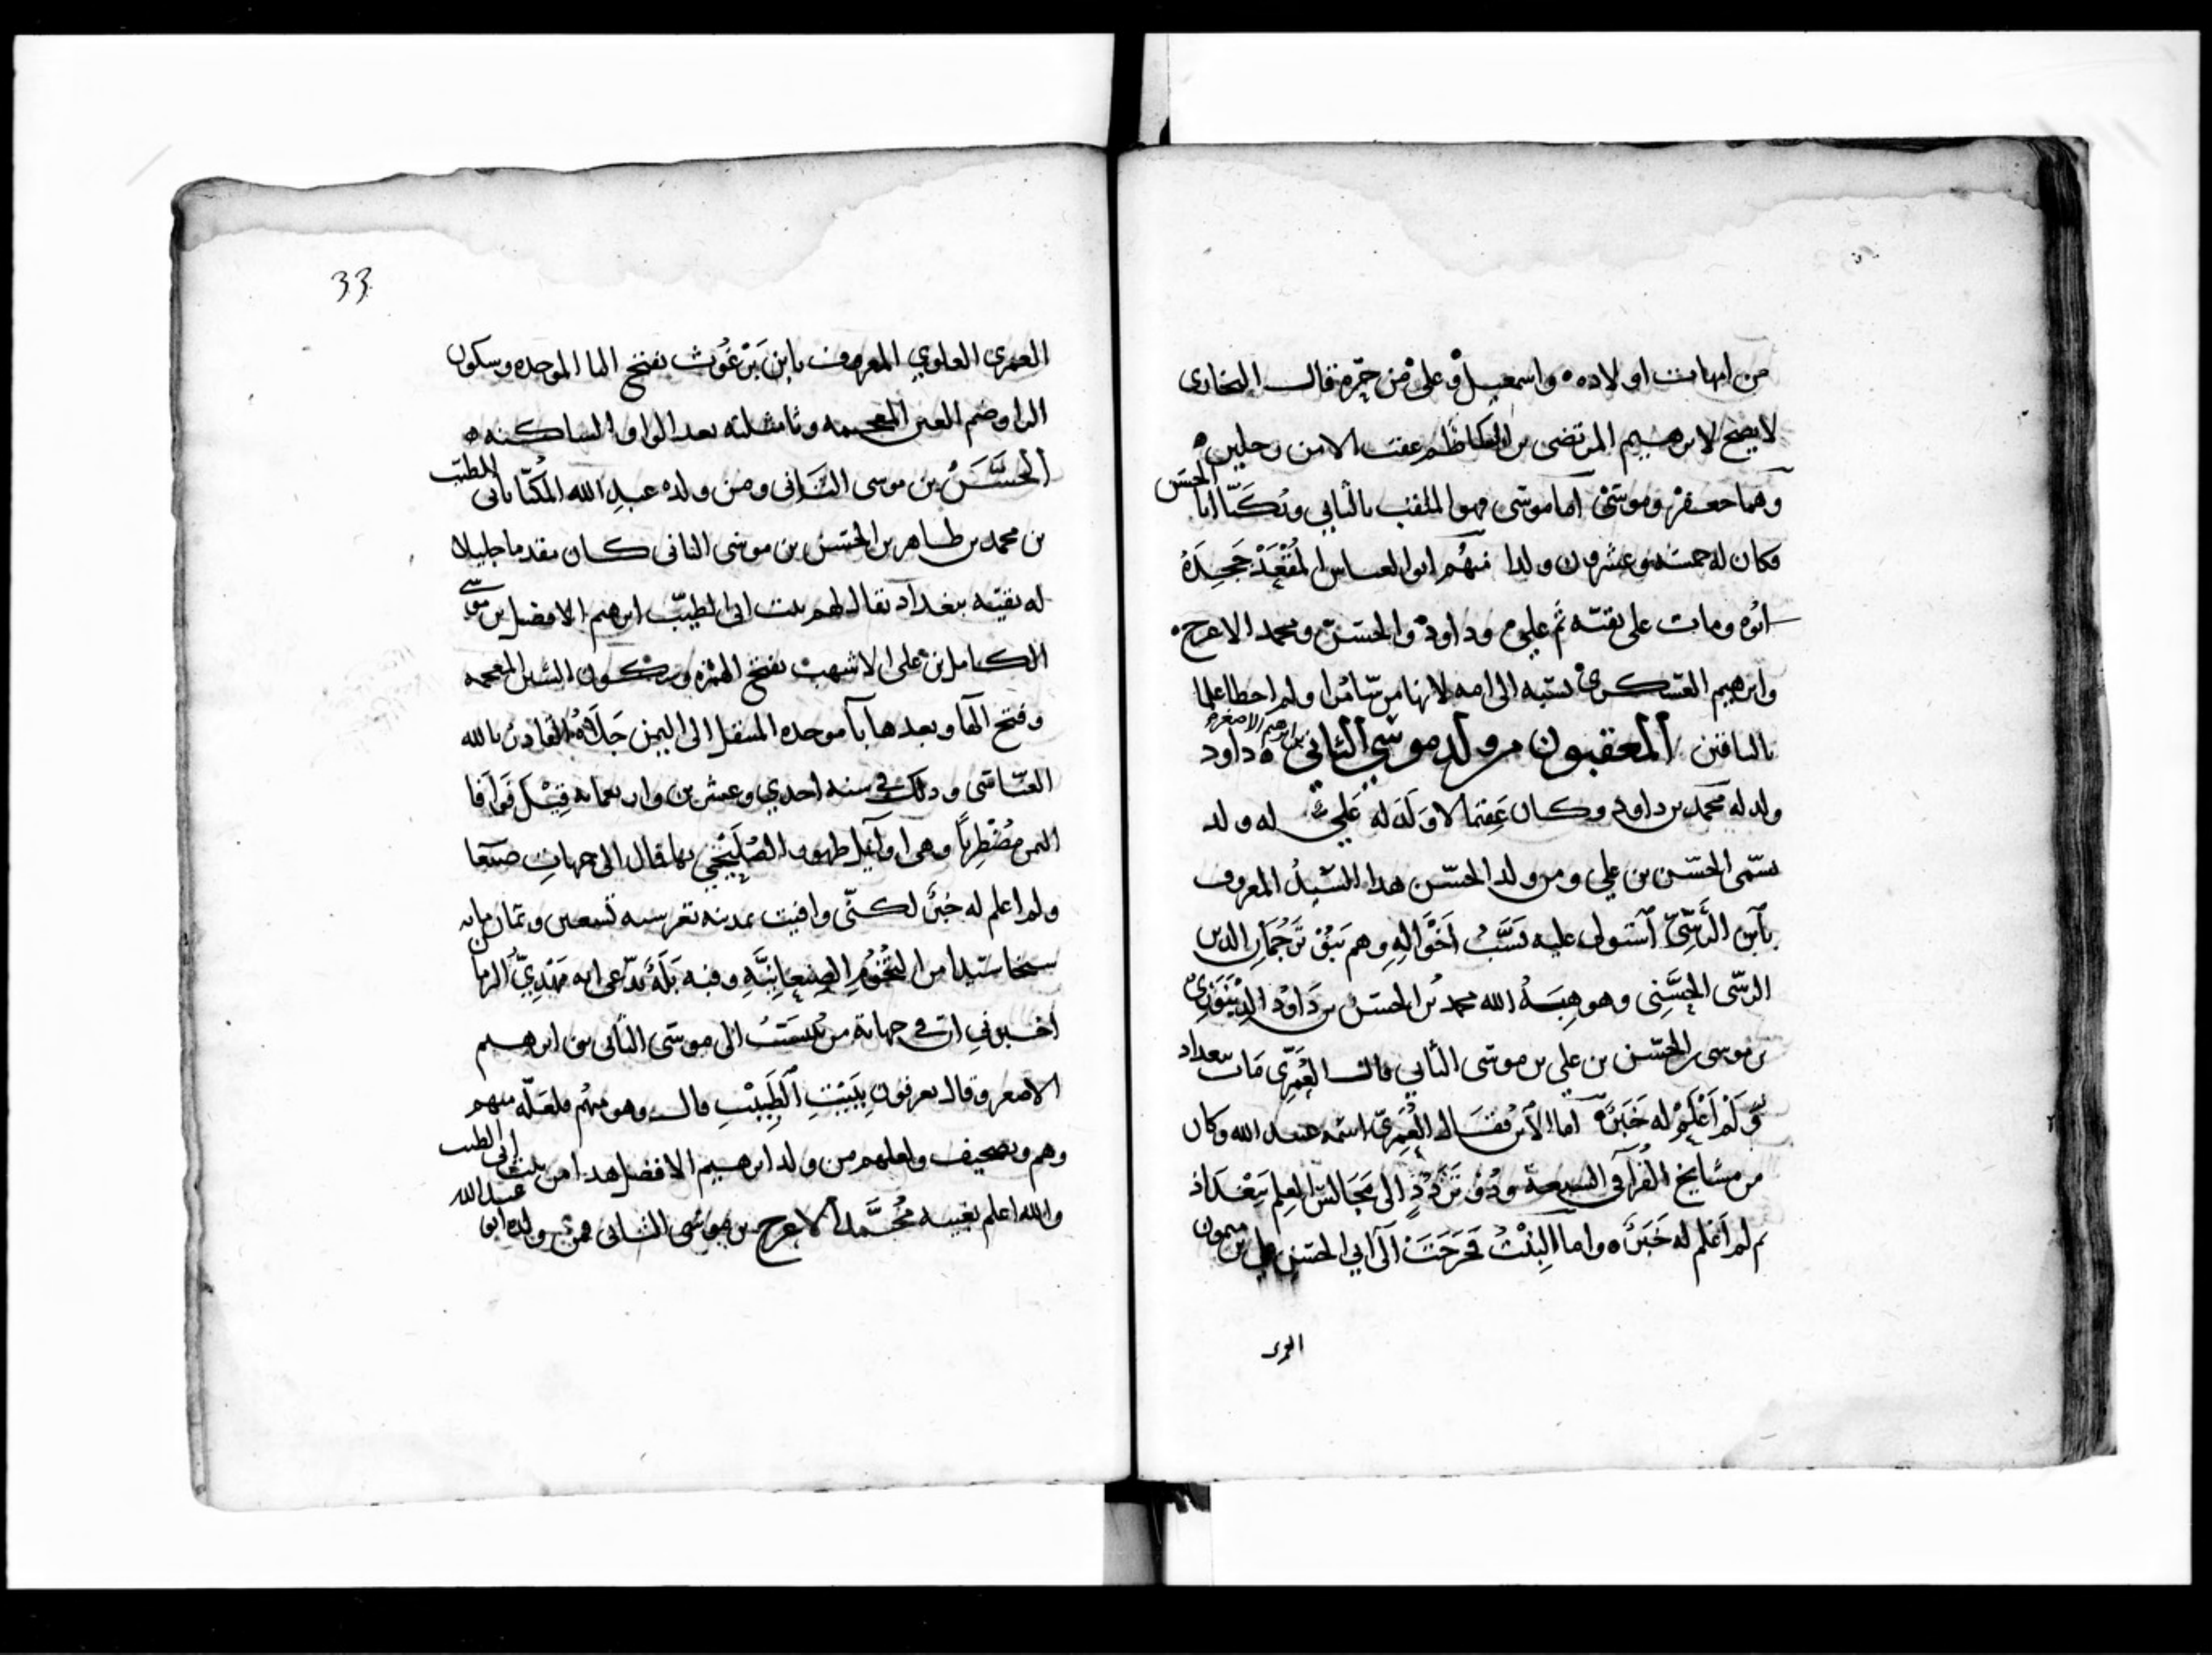 من امهات اولاده ه واسمعيل وعلي من حمزه قال البخارى
لا يصح لابرهيم المرتضى بن الكاظم عقب الا من رجلين ه
وهما جعفر وموسى اما موسى فهو الملقب بالثاني ويكنا ابا الحسن
وكان له خمسه وعشرون ولدا منهم ابو العباس المقعد جحده
ابوه ومات على بقته ثم علي وداود والحسن ومحمد الاعرج ه
وابرهيم العسكرى نسبه الى امه لانها من سامرا ولم احط علما
بالباقين المعقبون من ولد موسى الثاني بن ابرهيم الاصغر ه داود
ولد له محمد بن داود وكان عقيما لا ولد له علي له ولد
يسمى الحسن بن علي ومن ولد الحسن هذا السيد المعروف
بابن الرسي استولى عليه نسب اخواله وهم بنو ترجمان الدين
الرسى الحسنى وهو هبة الله محمد بن الحسن بن داود الدينورى
بن موسى بن الحسن بن علي بن موسى الثاني قال العمرى مات ببغداد
ولم اعلم له خبرا اما الابن فقال العمرى اسمه عبد الله وكان
من مشايخ القرآ فى السبعة وذو تردد الى مجالس العلم ببغداد
ثم لم اعلم له خبرا ه واما البنت فخرجت الى ابي الحسن علي بن ميمون
العمرى
33
العمرى العلوي المعروف بابن برغوث بفتح البا الموحده وسكون
الرا وضم الغين المعجمه وثا مثلثه بعد الواو الساكنه ه
الحسن بن موسى الثانى ومن ولده عبد الله المكنا بابى الطيب
بن محمد بن طاهر بن الحسن بن موسى الثانى كان مقدما جليلا
له بقيه ببغداد يقال لهم بيت ابى الطيب ابرهيم الافضل بن موسى
الكامل بن على الاشهب بفتح الهمزه وسكون الشين المعجمه
وفتح الها وبعدها بآ موحده المنتقل الى اليمن جلاه القادر بالله
العباسى وذلك فى سنه احدي وعشرين واربعمايه قيل فوافا
اليمن مضطربا وهى اوايل ظهور الصليحي بها فمال الى جهات صنعا
ولم اعلم له خبرا لكنى وافيت بمدينه تعز سنه تسعين وثمان مايه
سخا سيدا من التخوم الصنعانيه وفيه بله يدعى انه مهدي الزمان
اخبرونى ان فى جهاته من ينتسب الى موسى الثانى بن ابرهيم
الاصغر وقال يعرفون ببيت الطبيب قال وهو منهم فلعله منهم
وهم وتصحيف ولعلهم من ولد ابرهيم الافضل هذا من بيت ابى الطيب
والله اعلم بغيبه محمد الاعرج بن موسى الثانى فمن ولده ابو عبد الله